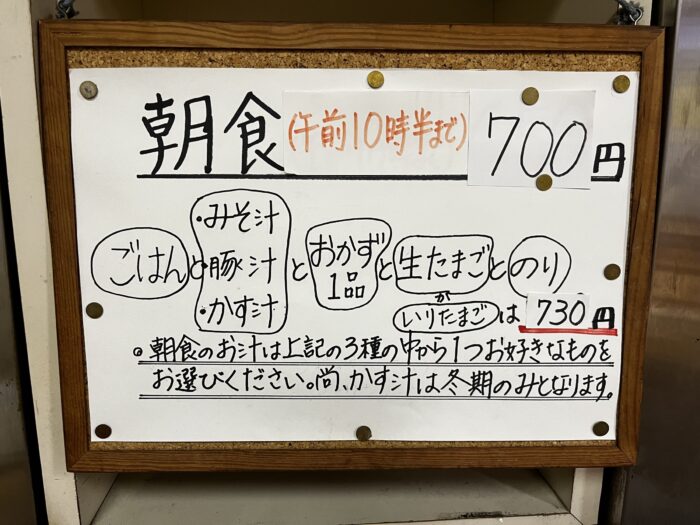 朝食(午前10時半まで) 700円
ごはんと・みそ汁・豚汁・かす汁とおかず1品と生たまごとのり
が
いりたまごは730円
。朝食のお汁は上記の3種の中から1つお好きなものを
お選びください。尚、かす汁は冬期のみとなります。